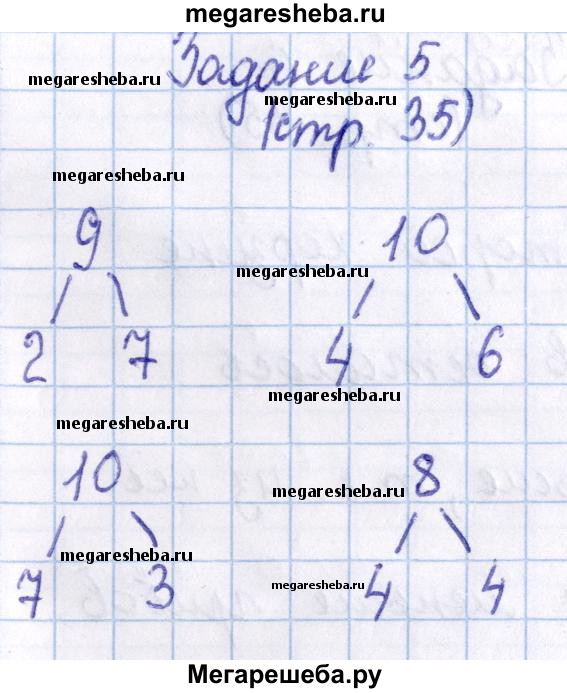 megaresheba.ru
Задание 5
megaresheba.ru
megaresheba.ru
(стр. 35)
megaresheba.ru
9 10
megaresheba.ru
2 7 4 6
megaresheba.ru
megaresheba.ru
10 8
megaresheba.ru
megaresheba.ru
7 3 4 4
megaresheba.ru
Мегарешеба.ру